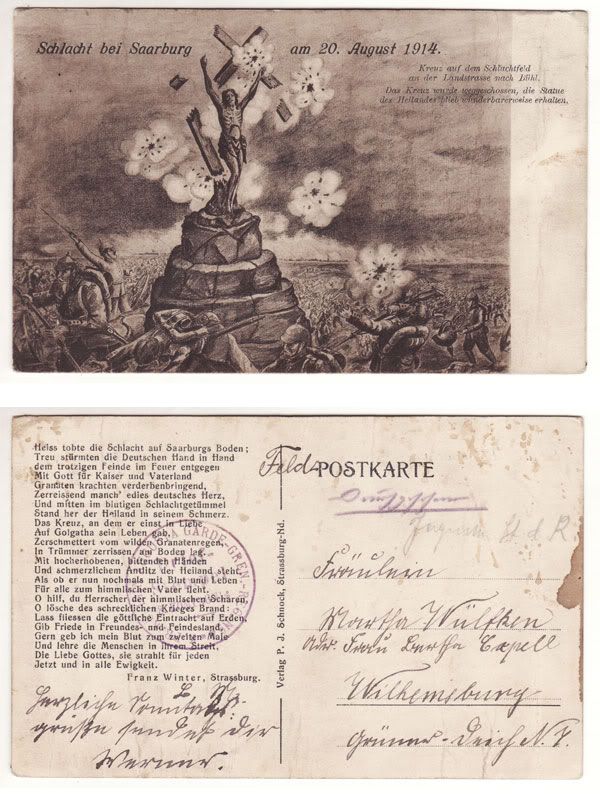 Schlacht bei Saarburg am 20. August 1914.
Kreuz auf dem Schlachtfeld
an der Landstrasse nach Bühl.
Das Kreuz wurde weggeschossen, die Statue
des Heilandes blieb wunderbarerweise erhalten.
Heiss tobte die Schlacht auf Saarburgs Boden;
Treu stürmten die Deutschen Hand in Hand
dem trotzigen Feinde im Feuer entgegen
Mit Gott für Kaiser und Vaterland
Granaten krachten verderbenbringend,
Zerreissend manch' edles deutsches Herz,
Und mitten im blutigen Schlachtgetümmel
Stand her der Heiland in seinem Schmerz.
Das Kreuz, an dem er einst in Liebe
Auf Golgatha sein Leben gab,
Zerschmettert vom wilden Granatenregen,
In Trümmer zerrissen, am Boden lag.
Mit hocherhobenen, bittenden Händen
Und schmerzlichem Antlitz der Heiland steht,
Als ob er nun nochmals mit Blut und Leben
Für alle zum himmlischen Vater fleht.
O hilf, du Herrscher der himmlischen Scharen,
O lösche des schrecklichen Krieges Brand:
Lass fliessen die göttliche Eintracht auf Erden,
Gib Friede in Freundes- und Feindesland,
Gern geb ich mein Blut zum zweiten Male
Und lehre die Menschen in ihrem Streit,
Die Liebe Gottes, sie strahlt für jeden
Jetzt und in alle Ewigkeit.
Franz Winter, Strassburg.
Herzliche Sonntags-
grüße sendet dir
Werner.
GARDE-GREN.-
Verlag P. J. Schnock, Strassburg-Nd.
Feld-POSTKARTE
Fräulein
Martha Wülfken
Adr. Frau Bertha Capell
Wilhemsburg